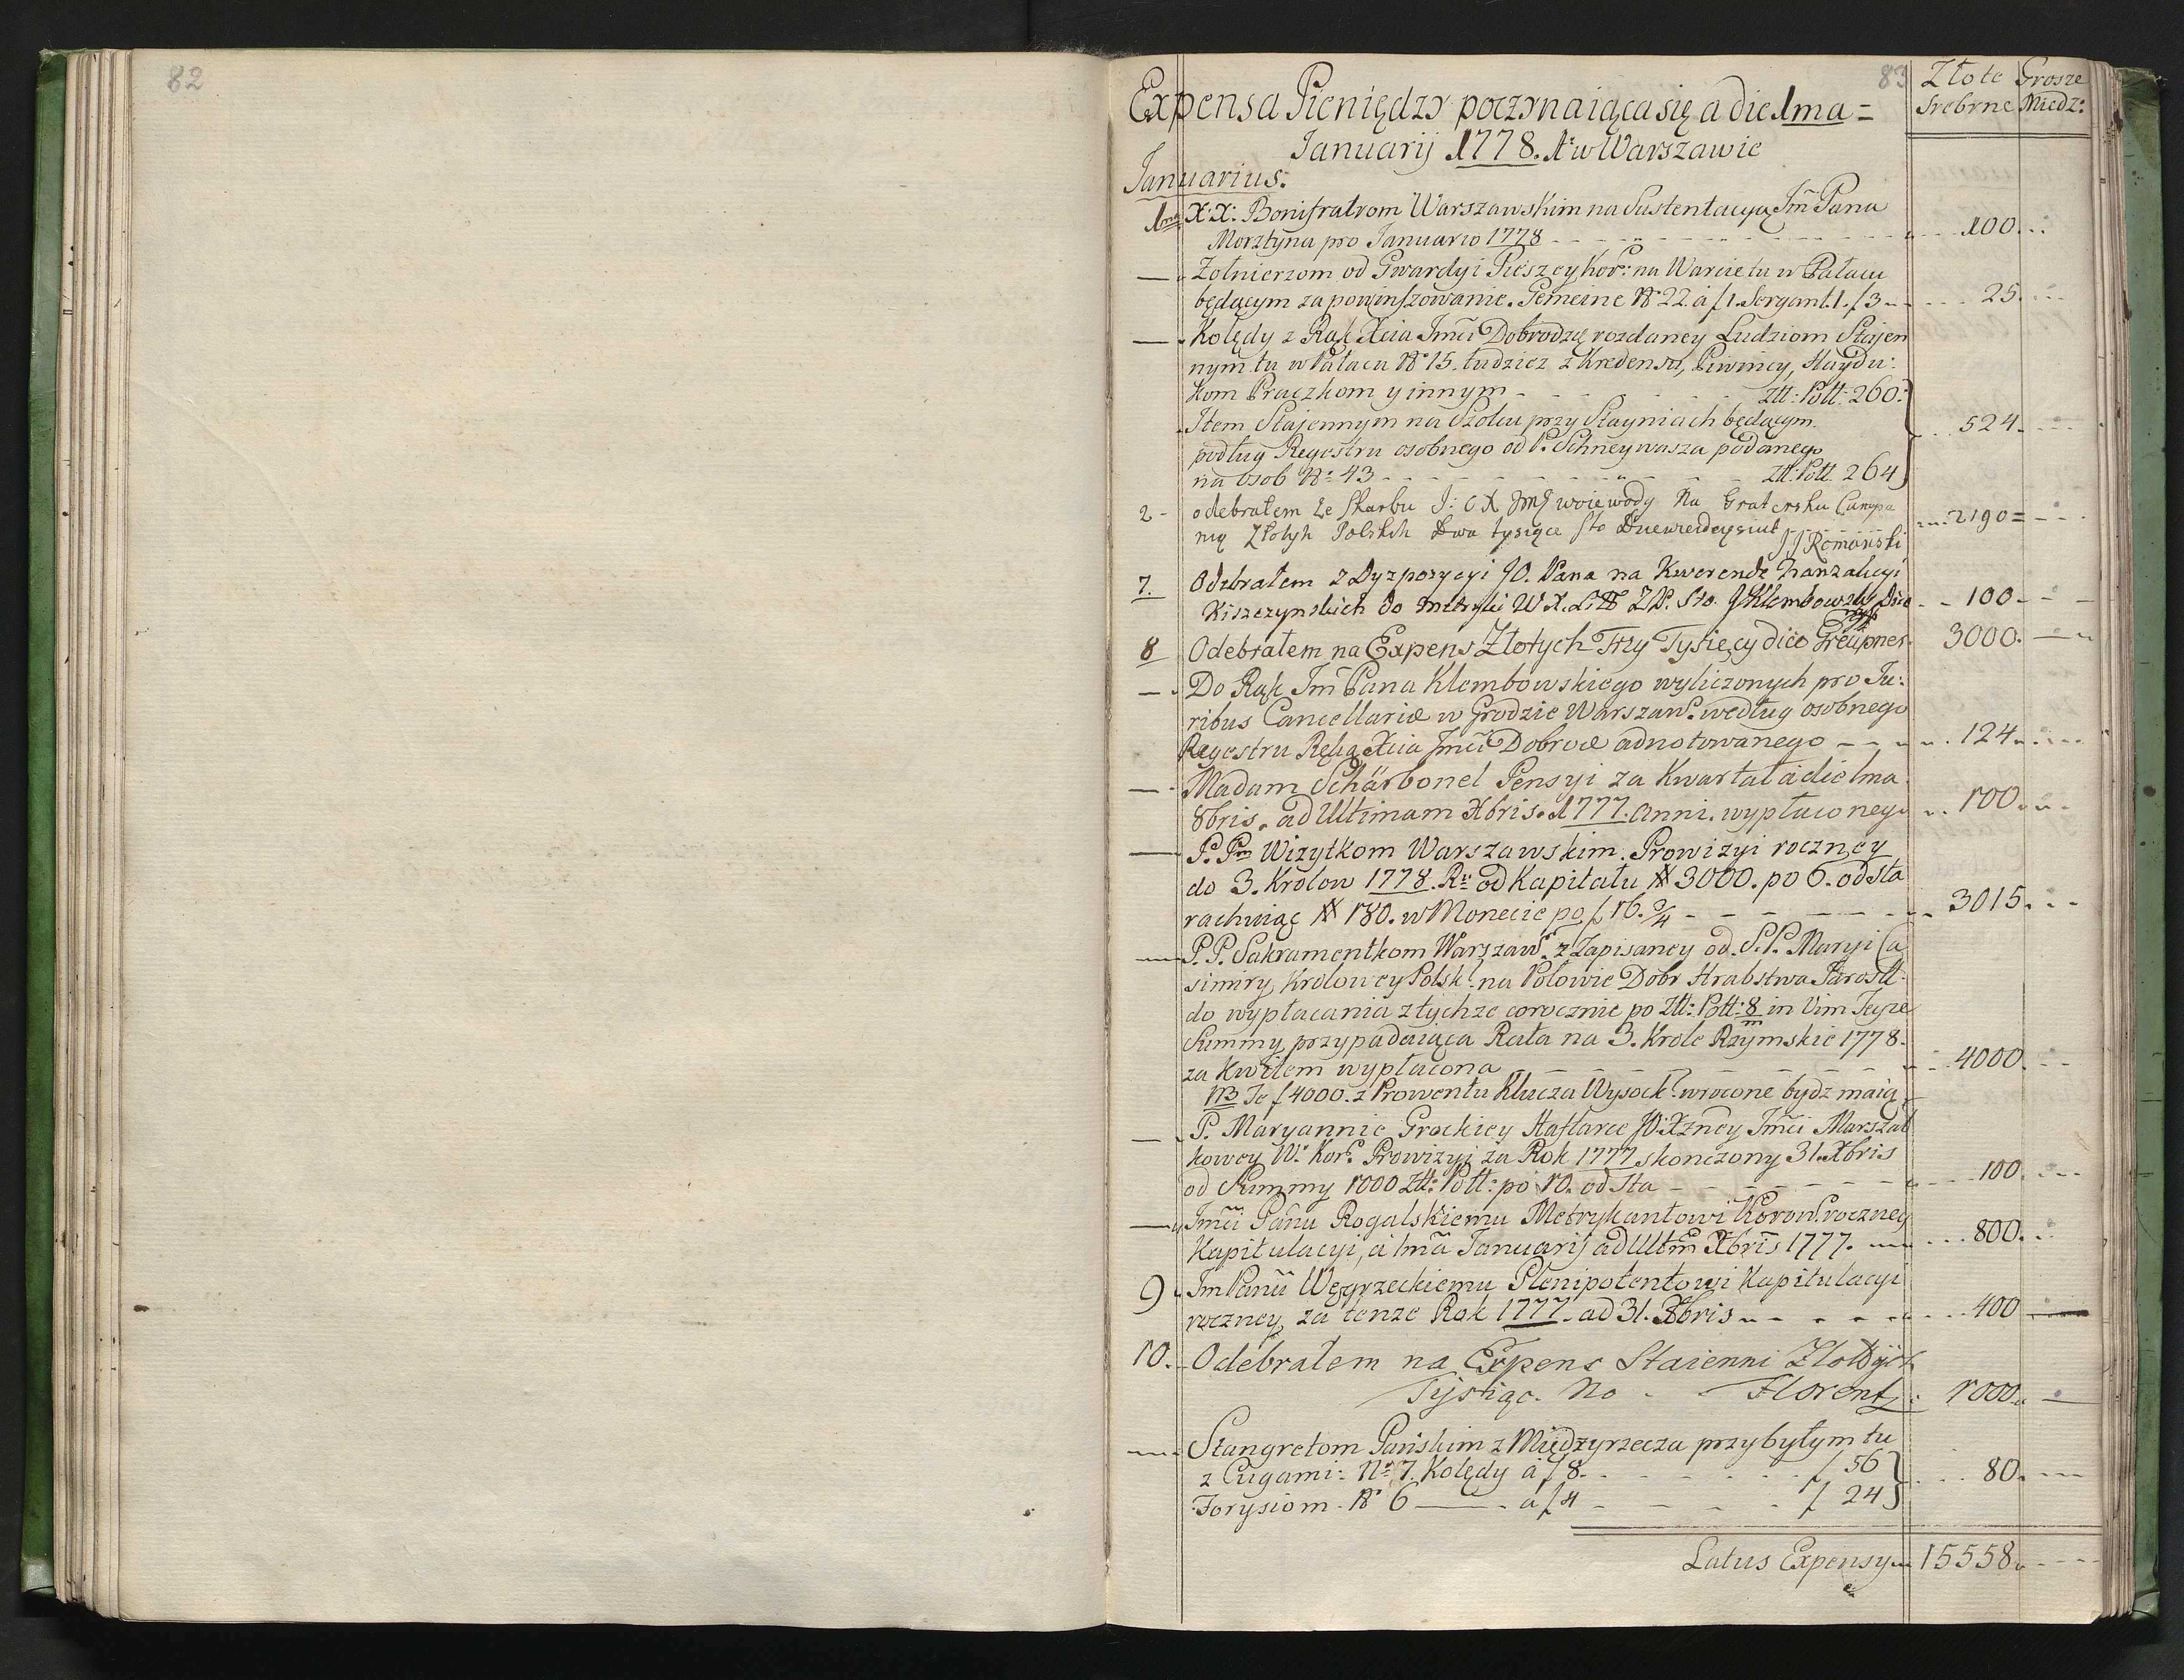 82
83
Złote Grosze
Srebrne Miedz:
Expensa Pieniędzy poczynaiąca się a die 1ma =
Januarij 1778. Aº w Warszawie
Januarius.
1ma X:X: Bonifratrom Warszawskim na Sustentacyą Jm̃ Pana
Morztyna pro Januario 1778 100
Zołnierzom od Gwardyi Pieszey Kor: na Warcie tu w Pałacu
będącym za powinszowanie. Gemeine Nº 22. á f 1. Sergant. 1. f 3 25.
Kolędy z Rąk Xcia Jmći Dobrodz. rozdaney Ludziom Stajen
nym tu w Pałacu Nº 15. tudziez z Kredensu, Piwnicy, Haydu:
kom Praczkom y innym ztt: Pott: 260.
Item Stajennym na Szolcu przy Stayniach będącym
podług Regestru osobnego od P. Schneywasza podanego
na osob Nº 43 ztt: Pott. 264 524.
2 - odebrałem ze Skarbu J: O X Jmć woiewody Na Campa
nią Złotych Polskich Dwa tysiące sto Dziewiędzięsiąt 2190=
J J Romański
7. Odebrałem z Dyzpozycyi JO. Pana na Kwerendę
Kiszczynskich do Metryki W X. Litt Z P. Sto. JKlembowski 100
8 Odebrałem na Expens Złotych Trzy Tysięcy dico Greupner. 3000.
Do Rąk Jm̃ Pana Klembowskiego wyliczonych pro Ju:
ribus Cancellariæ w Grodzie Warszaws. według osobnego
Regestru Ręką Xcia Jmći Dobrod adnotowanego 124
Madam Schärbonel Pensyi za Kwartał á die 1ma
8bris. ad Ultimam Xbris. 1777. Anni. wypłaconego 100.
P. Pm Wizytkom Warszawskim. Prowizyi roczney
do 3. Krolow 1778. Rº od Kapitału # 3000. po 6. od sta
rachuiąc # 180. w Monecie po f 16. ¾ 3015.
P. P. Sakramentkom Warszaws. z Zapisaney od Ś. P. Maryi Ca
simiry Krolowey Polsk: na Połowie Dobr Hrabstwa Jarosł:
do wypłacania z tychze corocznie po ztt: Pott: 8 in Vim Teyze
m
Summy, przypadaiąca Rata na 3. Krole Rzymskie 1778.
za Kwitem wypłacona 4000.
NB Te f 4000. z Prowentu Klucza Wysock: wrocone bydz maią
P. Maryannie Grockiey Haftarce JO: Xzney Jmći Marszał
kowey W. Kor: Prowizyi za Rok 1777 skonczony 31. Xbris
od Summy 1000 ztt: Pott: po 10. od sta 100.
Jmći Panu Rogalskiemu Metrykantowi Koron: roczney
Kapitulacyi, á 1ma Januarij ad Ultm̃ Xbris 1777. 800.
9 Jm Panu Węgrzeckiemu Plenipotentowi Kapitulacyi
roczney, za tenze Rok 1777. ad 31. Xbris 400
10. Odebrałem na Expens Staienni Złottych
Tysiąc. No Florent 1000
Stangretom Pańskim z Międzyrzecza przybyłym tu
z Cugami: Nº 7. Kolędy á f 8. f 56 80.
Forysiom - Nº 6 á f 4 f 24
Latus Expensy 15558